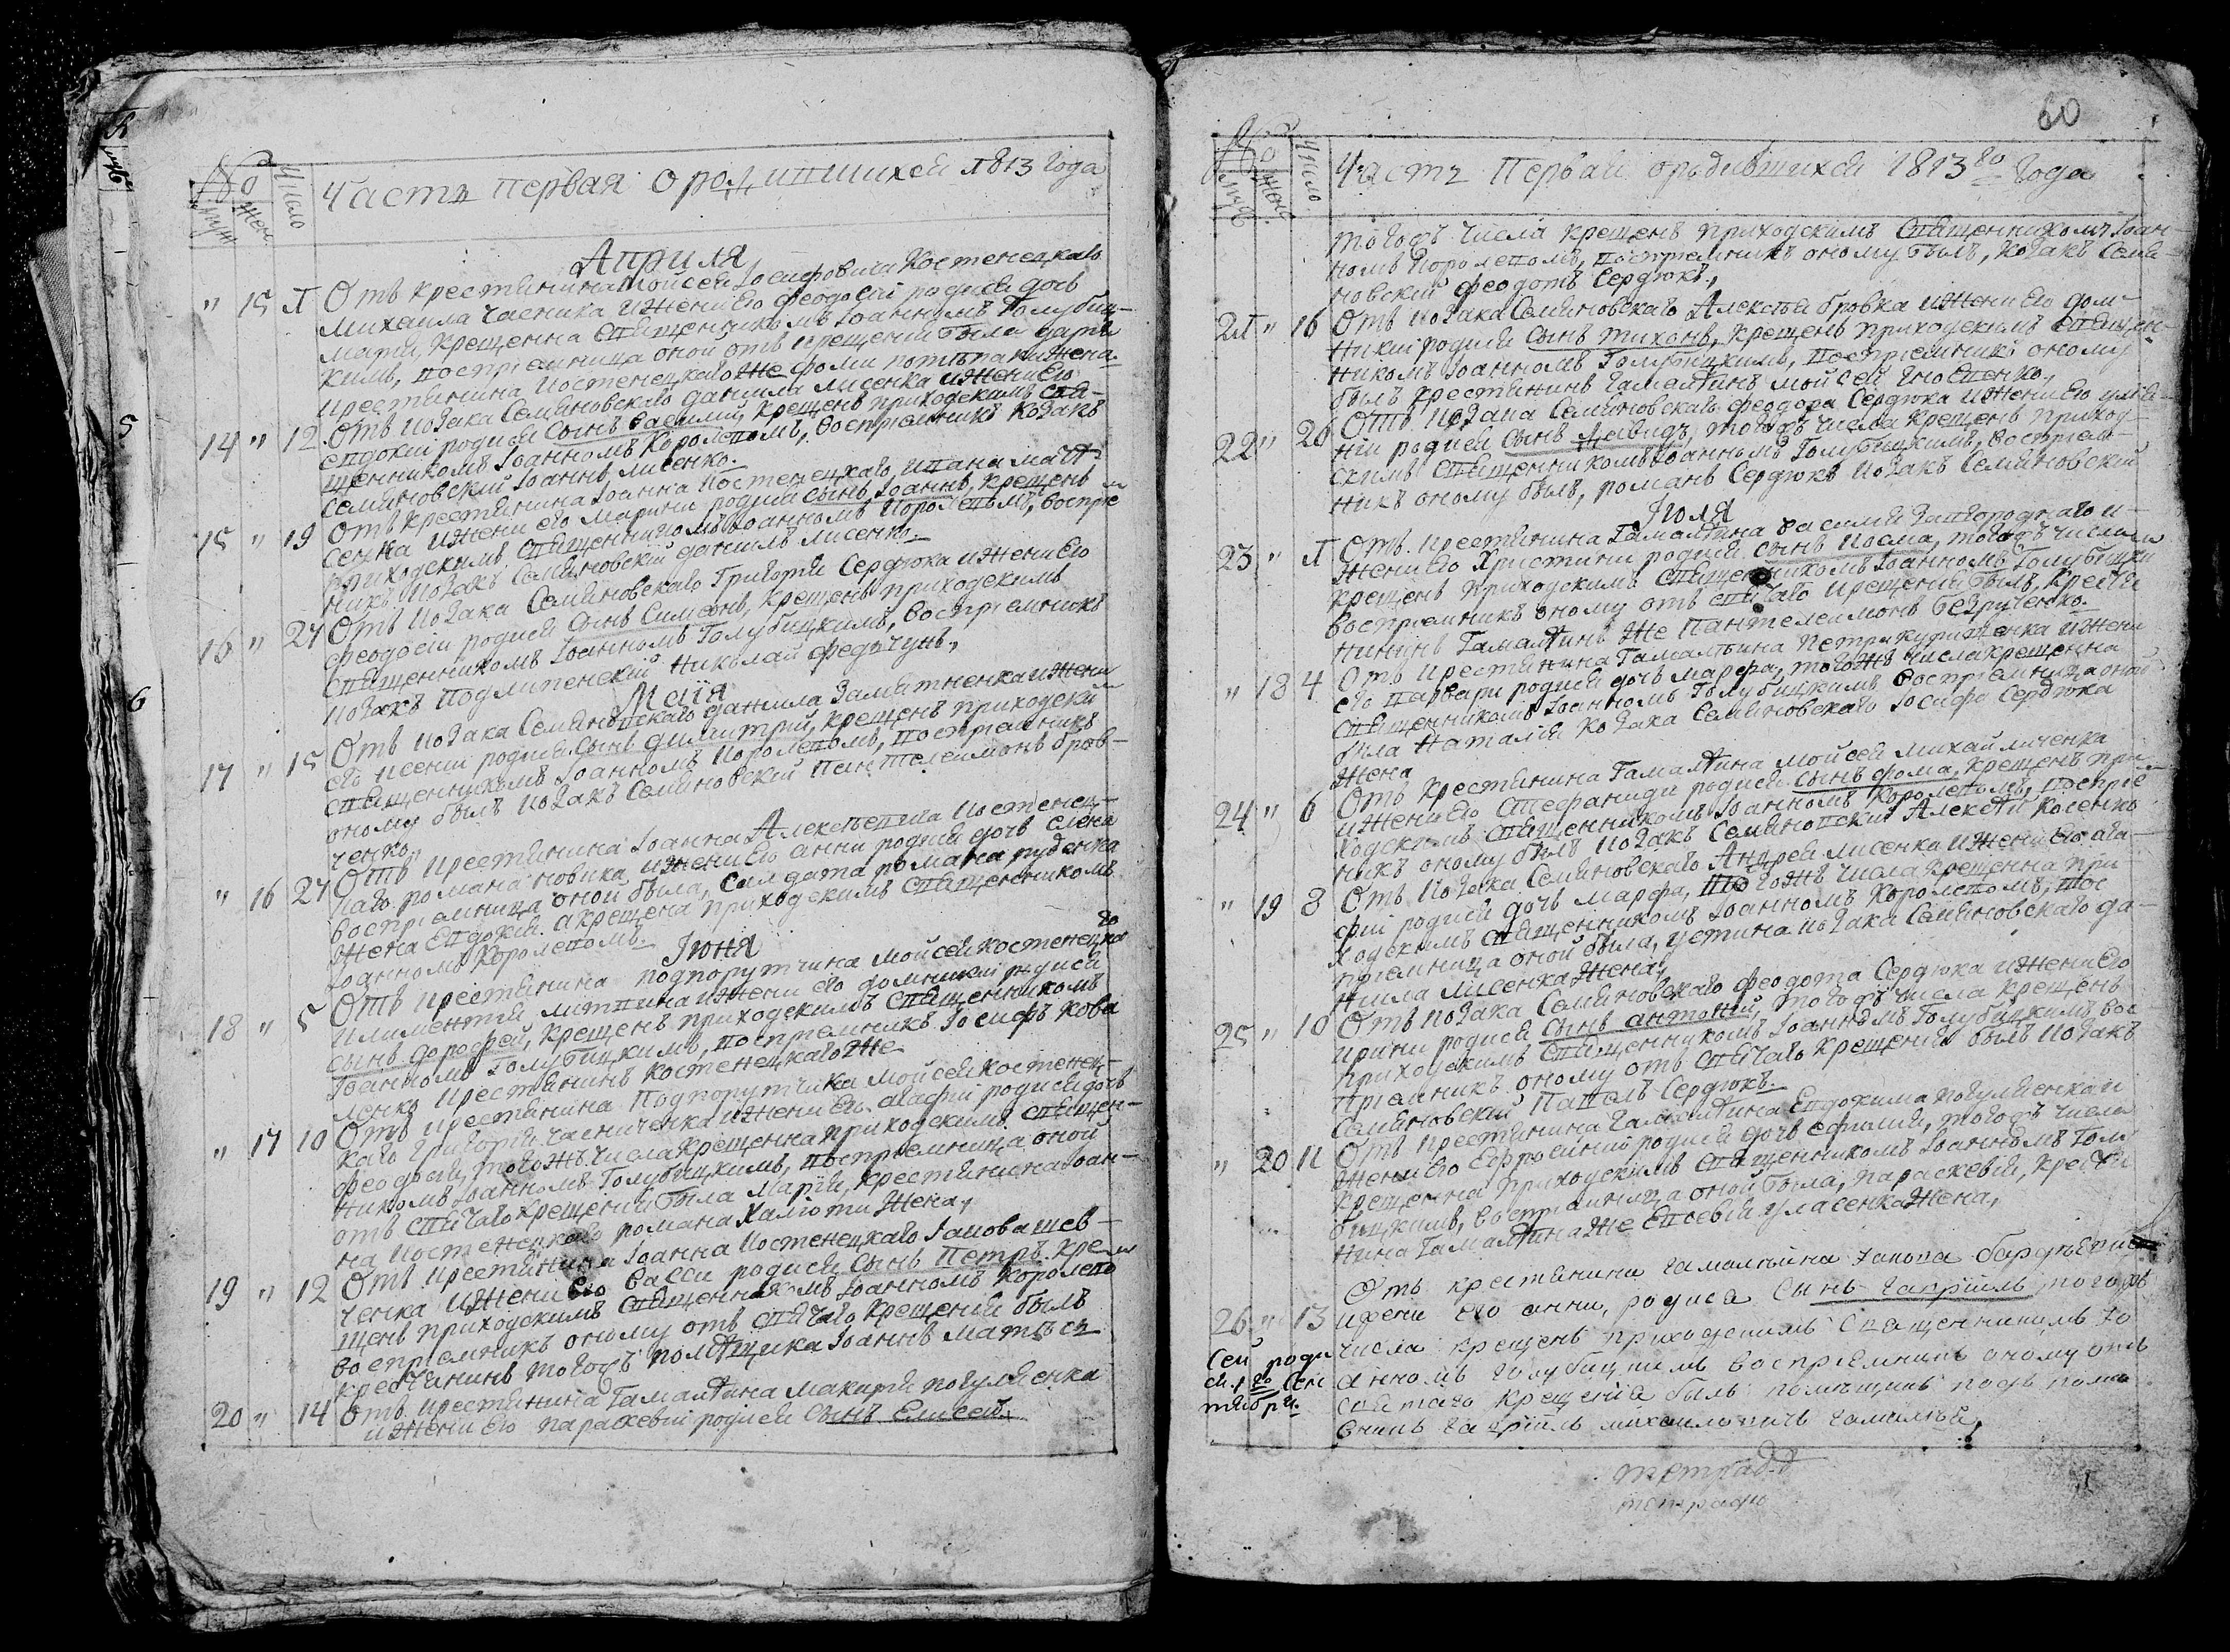 №
муж
жен
Число
Часть первая о родившихся 1813 года
Априля
" 15 1 Отъ крестянина Мойсея Іосифовича Костенецкаго
Михаила Часника и жени его Феодосіи родися дочь
Марія, крещенна священникомъ Іоанномъ Голубиц-
кимъ, восприемница оной отъ крещения была Дарія
крестянина Костенецкого же Фоми жена
14 " 12 Отъ козака Семяновскаго Данила Лисенка и жени его
Евдокіи родися сынъ Василій, крещенъ приходскимъ свя-
щенникомъ Іоанномъ Королевомъ, восприемникъ козакъ
Семяновский Іоаннъ Лисенко.
15 " 19 Отъ крестянина Іоанна Костенецкаго, Ивана
и жени его Марини родися сынъ Іоаннъ, крещенъ
приходскимъ священникомъ Іоанномъ Королевымъ, восприем
никъ козакъ Семяновский Данилъ Лисенко.
16 " 27 Отъ козака Семяновскаго Григорія Сердюка и жени его
Феодосіи родися сынъ Симеонъ, крещенъ приходскимъ
священникомъ Іоанномъ Голубицкимъ, восприемникъ
козакъ Подлипенский Николай Федчунъ,
Маія
17 " 15 Отъ козака Семяновскаго Данила Заматненка и жени
его Ксеніи родися сынъ Димитрий, крещенъ приходским
священникомъ Іоанномъ Королевомъ, восприемникъ
оному былъ козакъ Семяновский Пантелеимонъ Бров-
ченко,
" 16 27 Отъ крестянина Іоанна Алексеевича Костенец-
каго Романа Новика и жени его Анни родися дочь Елена
восприемница оной была, салдата Романа Руденка
жена Евдокия. а крещена приходскимъ священникомъ
Іоанномъ Королевомъ.
Іюня
18 " 5 Отъ крестянина подпорутчика Мойсея Костенецкаго
Климентія Литвина и жени его Домникіи родися
сынъ Дорофей, крещенъ приходскимъ священникомъ
Іоанномъ Голубицкимъ, восприемникъ Іосифъ Кова
ленко крестянинъ Костенецкаго же
" 17 10 Отъ крестянина Подпорутчика Мойсея Костенец-
каго Григорія Часниченка и жени его Агафіи родися дочь
Феодосия, тогожъ числа крещенна приходскимъ священ-
никомъ Іоанномъ Голубицкимъ, восприемница оной
отъ святаго крещения была Марія, крестянина Іоан-
на Костенецкаго Романа Халюти жена,
19 " 12 Отъ крестянина Іоанна Костенецкаго Іаковашев-
ченка и жени его Васси родися сынъ Петръ. кре-
щенъ приходскимъ священникомъ Іоанномъ Королево
восприемникъ оному отъ святаго крещения былъ
крестянинъ тогожъ помещика Іоаннъ
20 " 14 Отъ крестянина Гамалѣина Макария Погуляенка
и жени его Параскевіи родися сынъ Елисей.
60
№
муж
жен
Число
Часть Первая о родившихся 1813го Года
тогожъ числа крещенъ приходскимъ священникомъ Іоан-
номъ Королевомъ, восприемникъ оному былъ, козакъ Семя-
новский Феодотъ Сердюкъ,
21 " 16 Отъ козака Семяновскаго Алексѣя Бровка и жени его Дом-
никіи родися сынъ Тихонъ, крещенъ приходскимъ священ-
никомъ Іоанномъ Голубицкимъ, восприемникъ оному
былъ крестянинъ Гамалѣинъ Мойсей
22 " 20 Отъ козака Семяновскаго Феодора Сердюка и жени его Улия-
ніи родися сынъ Давидъ, тогожъ числа крещенъ приход-
скимъ священникомъ Іоанномъ Голубицкимъ, восприем-
никъ оному былъ, Романъ Сердюкъ козакъ Семяновский
Іюля
23 " 1 Отъ крестянина Гамалѣина Василия Загороднаго и
жени его Христини родися сынъ Косма, тогожъ числа
крещенъ приходскимъ священникомъ Іоанномъ Голубицким
восприемникъ оному отъ святаго крещения былъ, крестя
нинъ Гамалѣинъ же Пантелеимонъ Безрученко.
" 18 4 Отъ крестянина Гамалѣина Петра и жени
его Варвари родися дочь Марфа, тогожъ числа крещенна
священникомъ Іоанномъ Голубицкимъ восприемница оной
была Наталия козака Семяновскаго Іосифа Сердюка
жена
24 " 6 Отъ крестянина Гамалѣина Мойсея Михайличенка
и жени его Стефаниди родися сынъ Фома, крещенъ при-
ходскимъ священникомъ Іоанномъ Королевомъ, восприе
никъ оному былъ козакъ Семяновский Алексѣй Косенко
" 19 8 Отъ козака Семяновскаго Андрея Лисенка и жени его Ага-
фіи родися дочь Марфа, тогожъ числа крещенна при-
ходскимъ священникомъ Іоанномъ Королевомъ, вос
приемница оной была, Устина козака Семяновскаго Да-
нила Лисенка жена,
25 " 10 Отъ козака Семяновскаго Феодота Сердюка и жени его
Ирини родися сынъ Антоний, тогожъ числа крещенъ
приходскимъ священникомъ Іоанномъ Голубицкимъ, вос
приемникъ оному отъ святаго крещения былъ козакъ
Семяновский Павелъ Сердюкъ.
" 20 11 Отъ крестянина Гамалѣина Евдокима Погуляенка и
жени его Ефросиніи родися дочь Ефимия, тогожъ числа
крещенна приходскимъ священникомъ Іоанномъ Голу
бицкимъ, восприемница оной была, Параскевія, крестя
нина Гамалѣина же Евсевия Уласенка жена,
26 " 13 Отъ крестянина Гамалѣина Іакова
ижени его Анни, родися сынъ Гавріилъ тогожъ
числа крещенъ приходскимъ священникомъ Іо
анномъ Голубицкимъ восприемникъ оному отъ
святаго крещения былъ помѣщикъ подполко
вникъ Гавріилъ Михаиловичъ Гамалѣя,
Сей роди
ся 1го Сен
тября.
тетрад
тетрадь